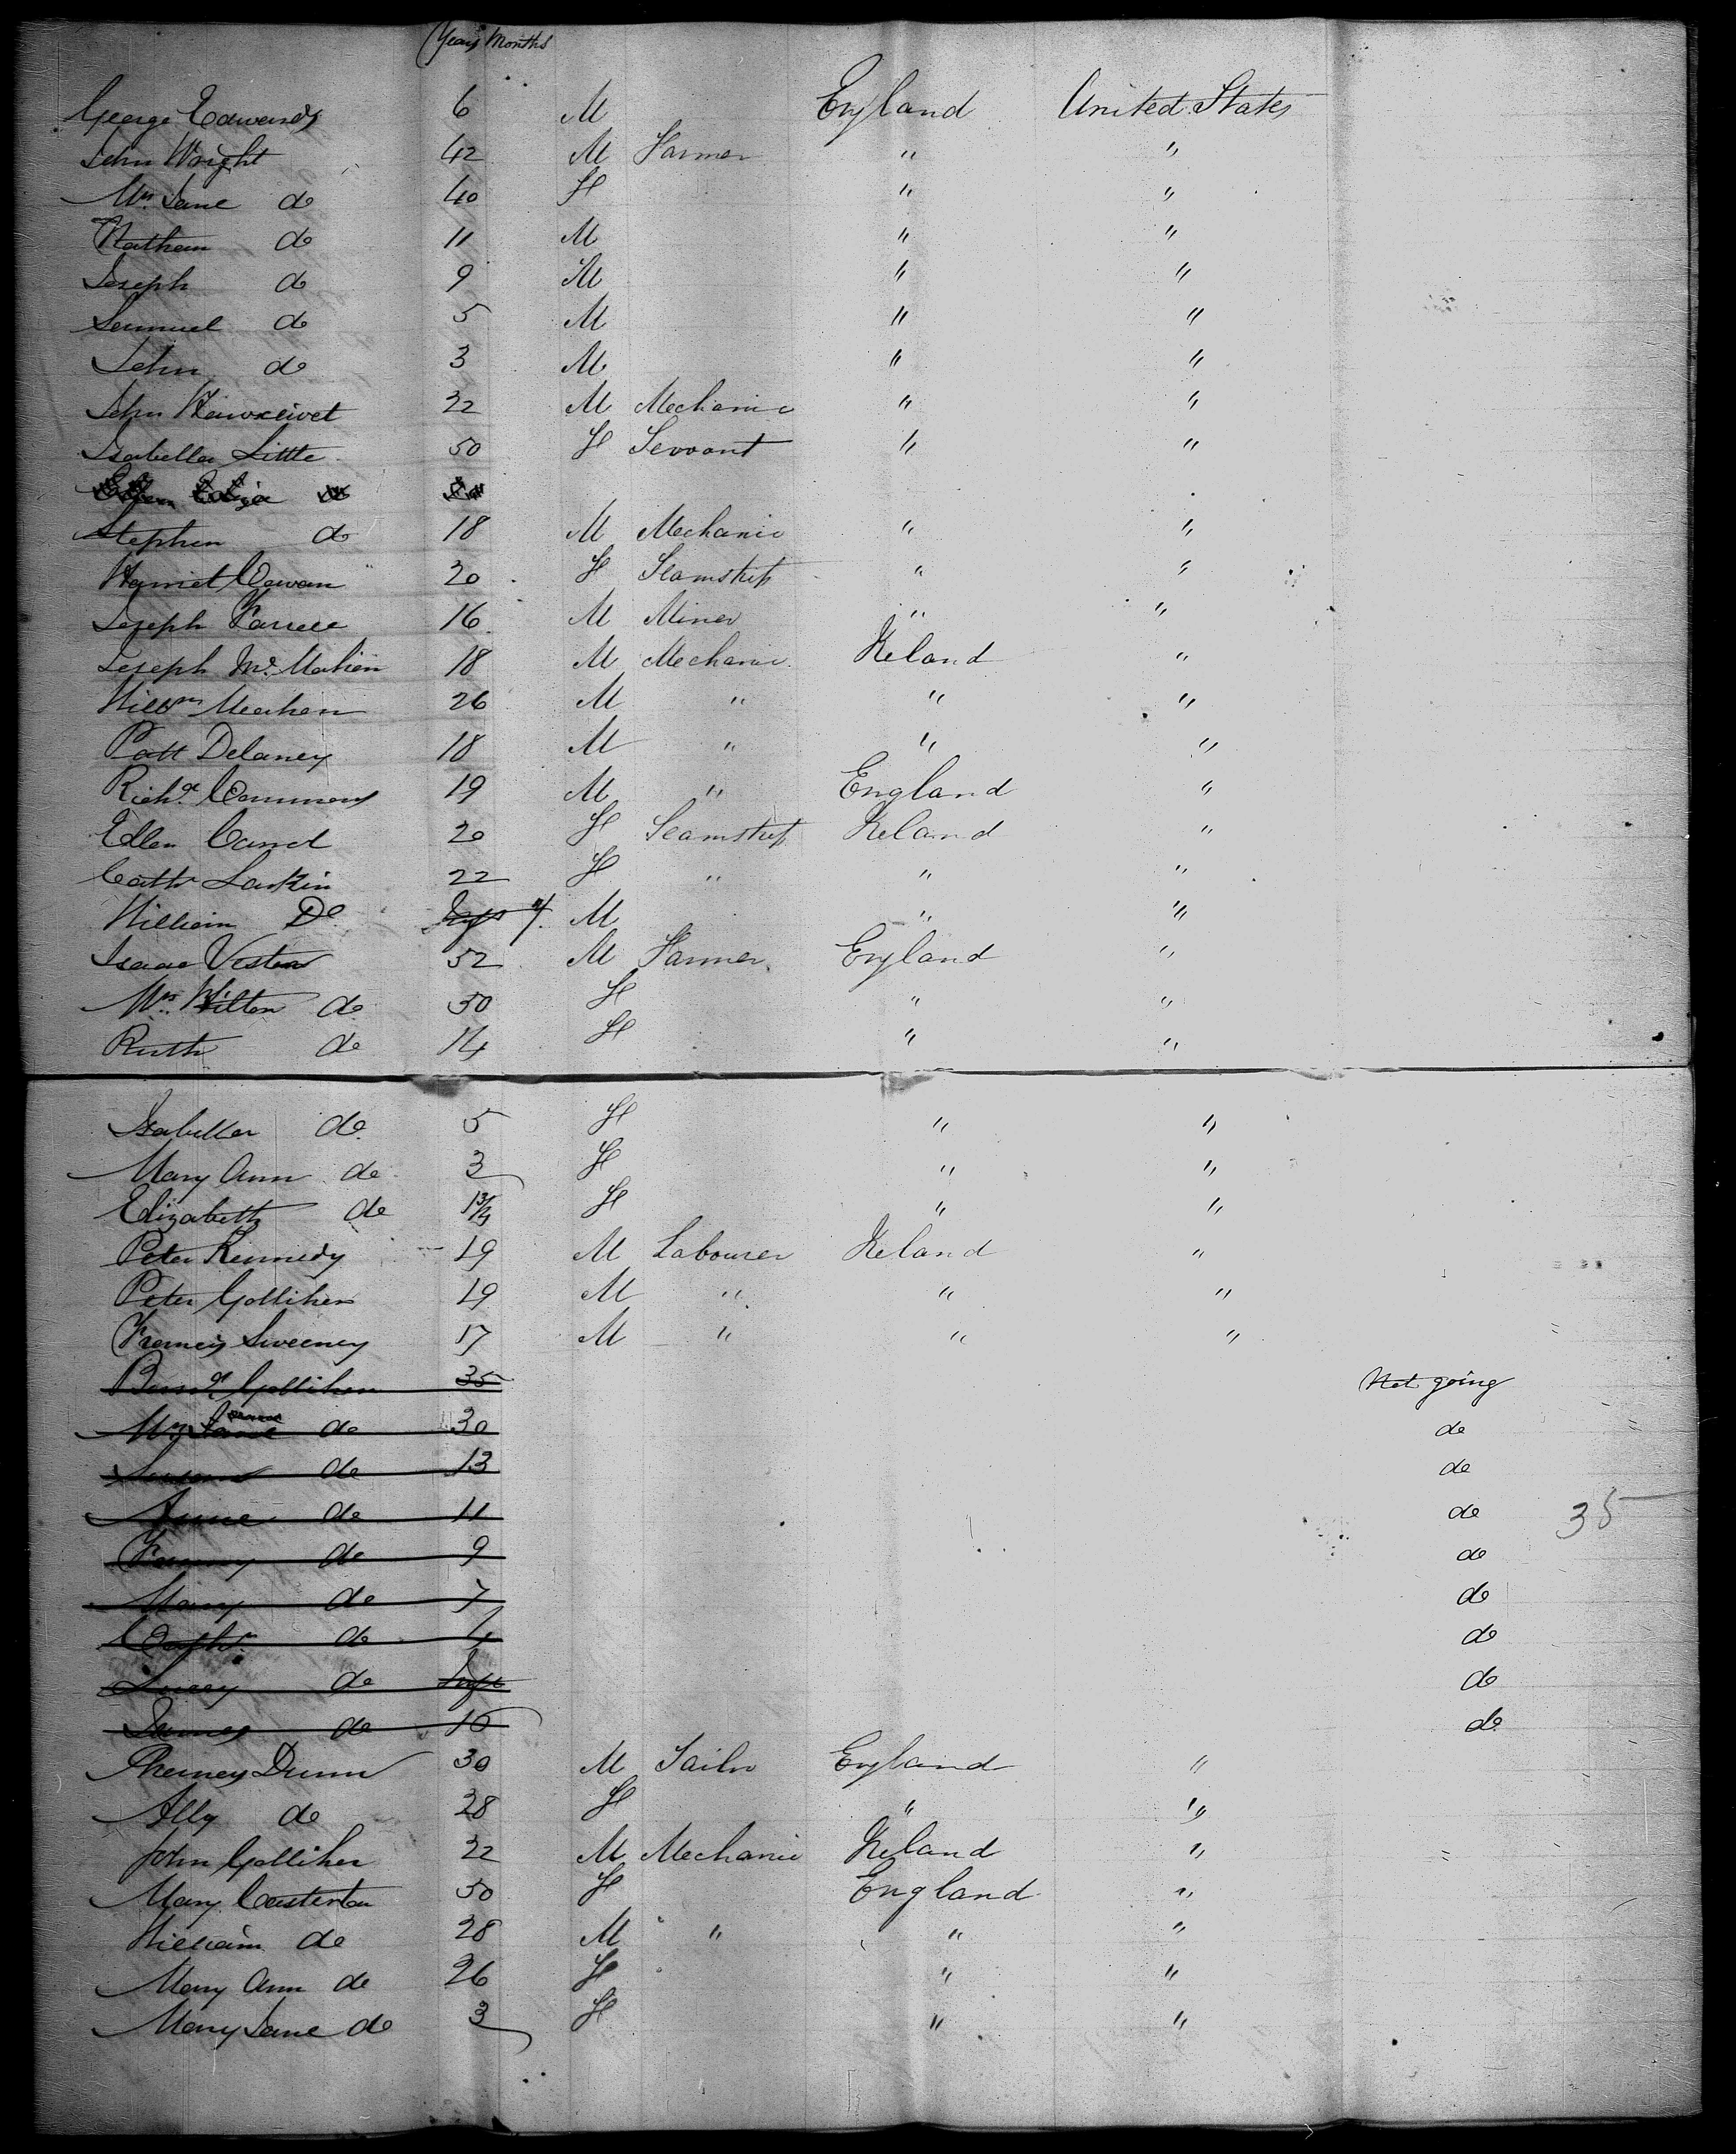 Years Months
George Edwards 6 M England United States
John Wright 42 M Farmer " "
Mrs. Jane do 40 F " "
Nathan do 11 M " "
Joseph do 9 M " "
Samuel do 5 M " "
John do 3 M " "
John 22 M Mechanic " "
Isabella Little 50 F Servant " "
Stephen do 18 M Mechanic " "
Harriet Cowan 20 F Seamstress " "
Joseph 16 M Miner " "
Joseph Mc. 18 M Mechanic Ireland "
Willm Meahan 26 M " " "
Patt Delaney 18 M " " "
Richd. Commons 19 M " England "
Ellen 20 F Seamstress Ireland "
Cath Larkin 22 F " " "
William Do Inft 4 M " "
Isaac 52 M Farmer England "
Mrs. do 50 F " "
Ruth do 14 F " "
Isabella do 5 F " "
Mary Ann do 3 F " "
Elizabeth do 1 3/4 F " "
Peter Kennedy 19 M Labourer Ireland "
Peter Golliher 19 M " " "
Francis Sweeney 17 M " " "
Bernd Golliher 35 Not going
Mrs do 30 do
Susan do 13 do
Anne do 11 do 35
Fanny do 9 do
Mary do 7 do
do 4 do
do Inft do
James do 10 do
Dunn 30 M England "
Ally do 28 F " "
John Golliher 22 M Mechanic Ireland "
Mary Casterton 50 F England "
William do 28 M " " "
Mary Ann do 26 F " "
Mary Jane do 3 F " "